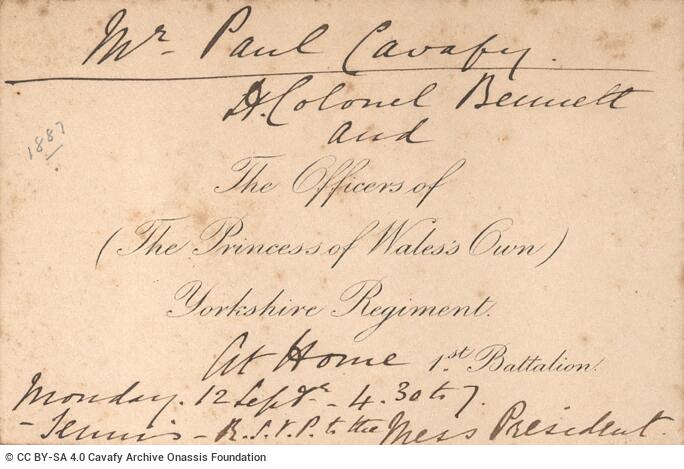 Mr. Paul Cavafy.
Lt. Colonel Bennett
and
1887
The Officers of
(The Princess of Wales's Own)
Yorkshire Regiment.
At Home 1st. Battalion.
Monday. 12 Septbr - 4.30 to 7.
- Tennis - R.S.V.P. to the Mess President.
© CC BY-SA 4.0 Cavafy Archive Onassis Foundation